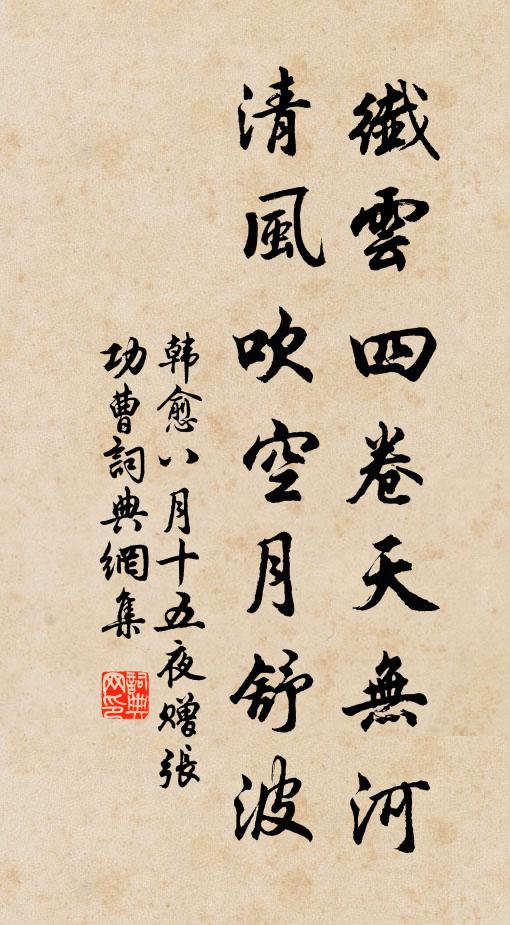 纖雲四卷天無河
清風吹空月舒波
韩愈八月十五夜赠張
功曹詞典網集
詞典网印